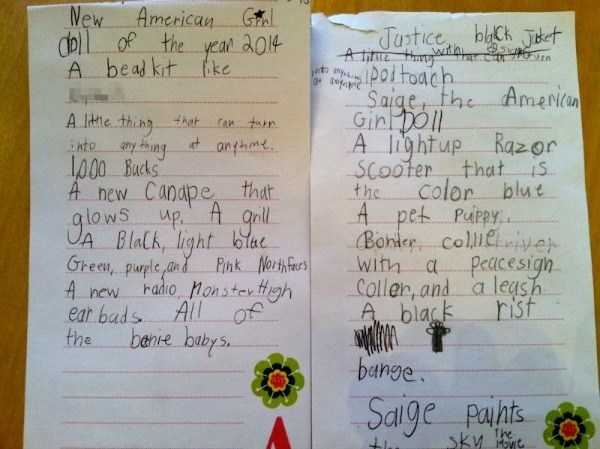 New American Girl
doll of the year 2014
A bead kit like
A little thing that can turn
into any thing at anytime.
1,000 Bucks
A new Canape that
glows up. A grill
A Black, light blue
Green, purple, and Pink Northfaces
A new radio, Monster High
ear bads. All of
the benie babys.
Justice black Jaket
with
A little thing that can turn
into anything
at anytime
ipod toach
Saige, the American
Girl Doll
A lightup Razor
Scooter that is
the color blue
A pet Puippy,
(Border, collie
with a peacesign
Coller, and a leash
A black rist
bange.
Saige paints
the sky The Movie